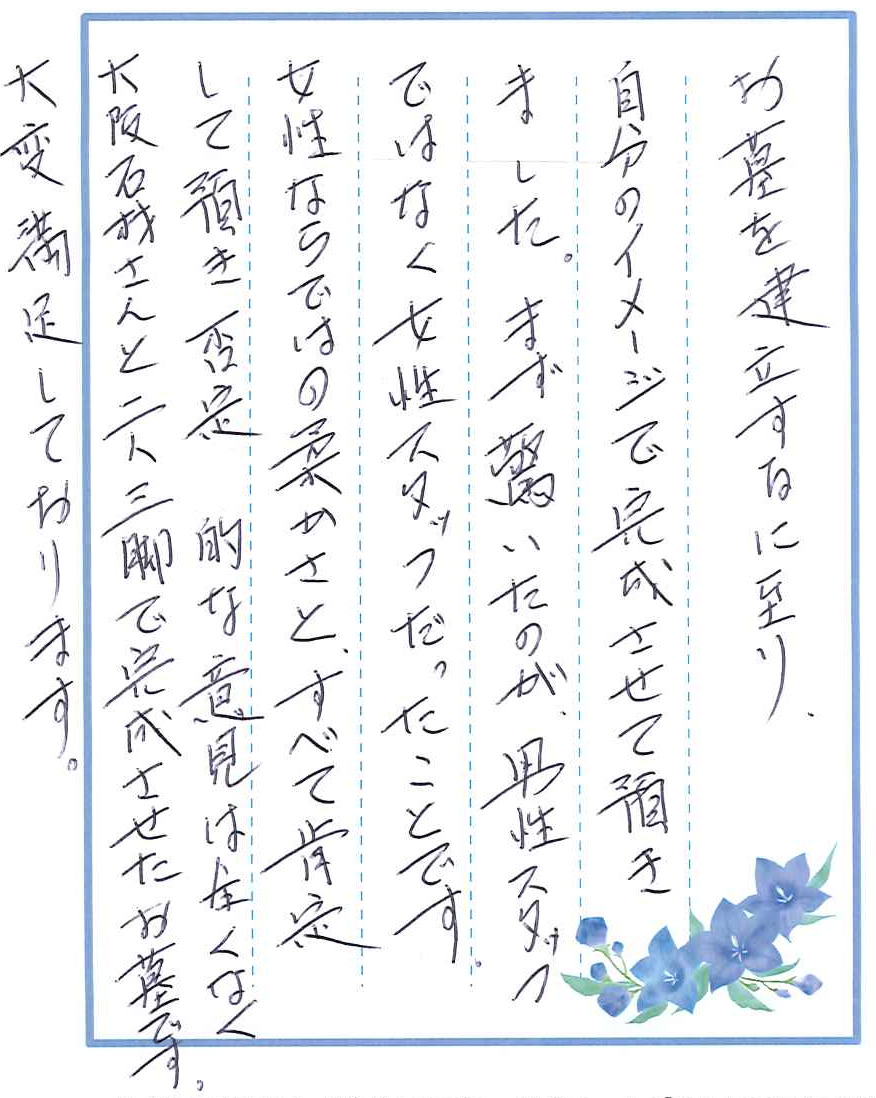 お墓を建立するに至り、
自分のイメージで完成させて頂き
ました。まず驚いたのが、男性スタッフ
ではなく女性スタッフだったことです。
女性ならではの柔かさと、すべて肯定
して頂き否定 的な意見は全くなく
大阪石材さんと二人三脚で完成させたお墓です。
大変満足しております。